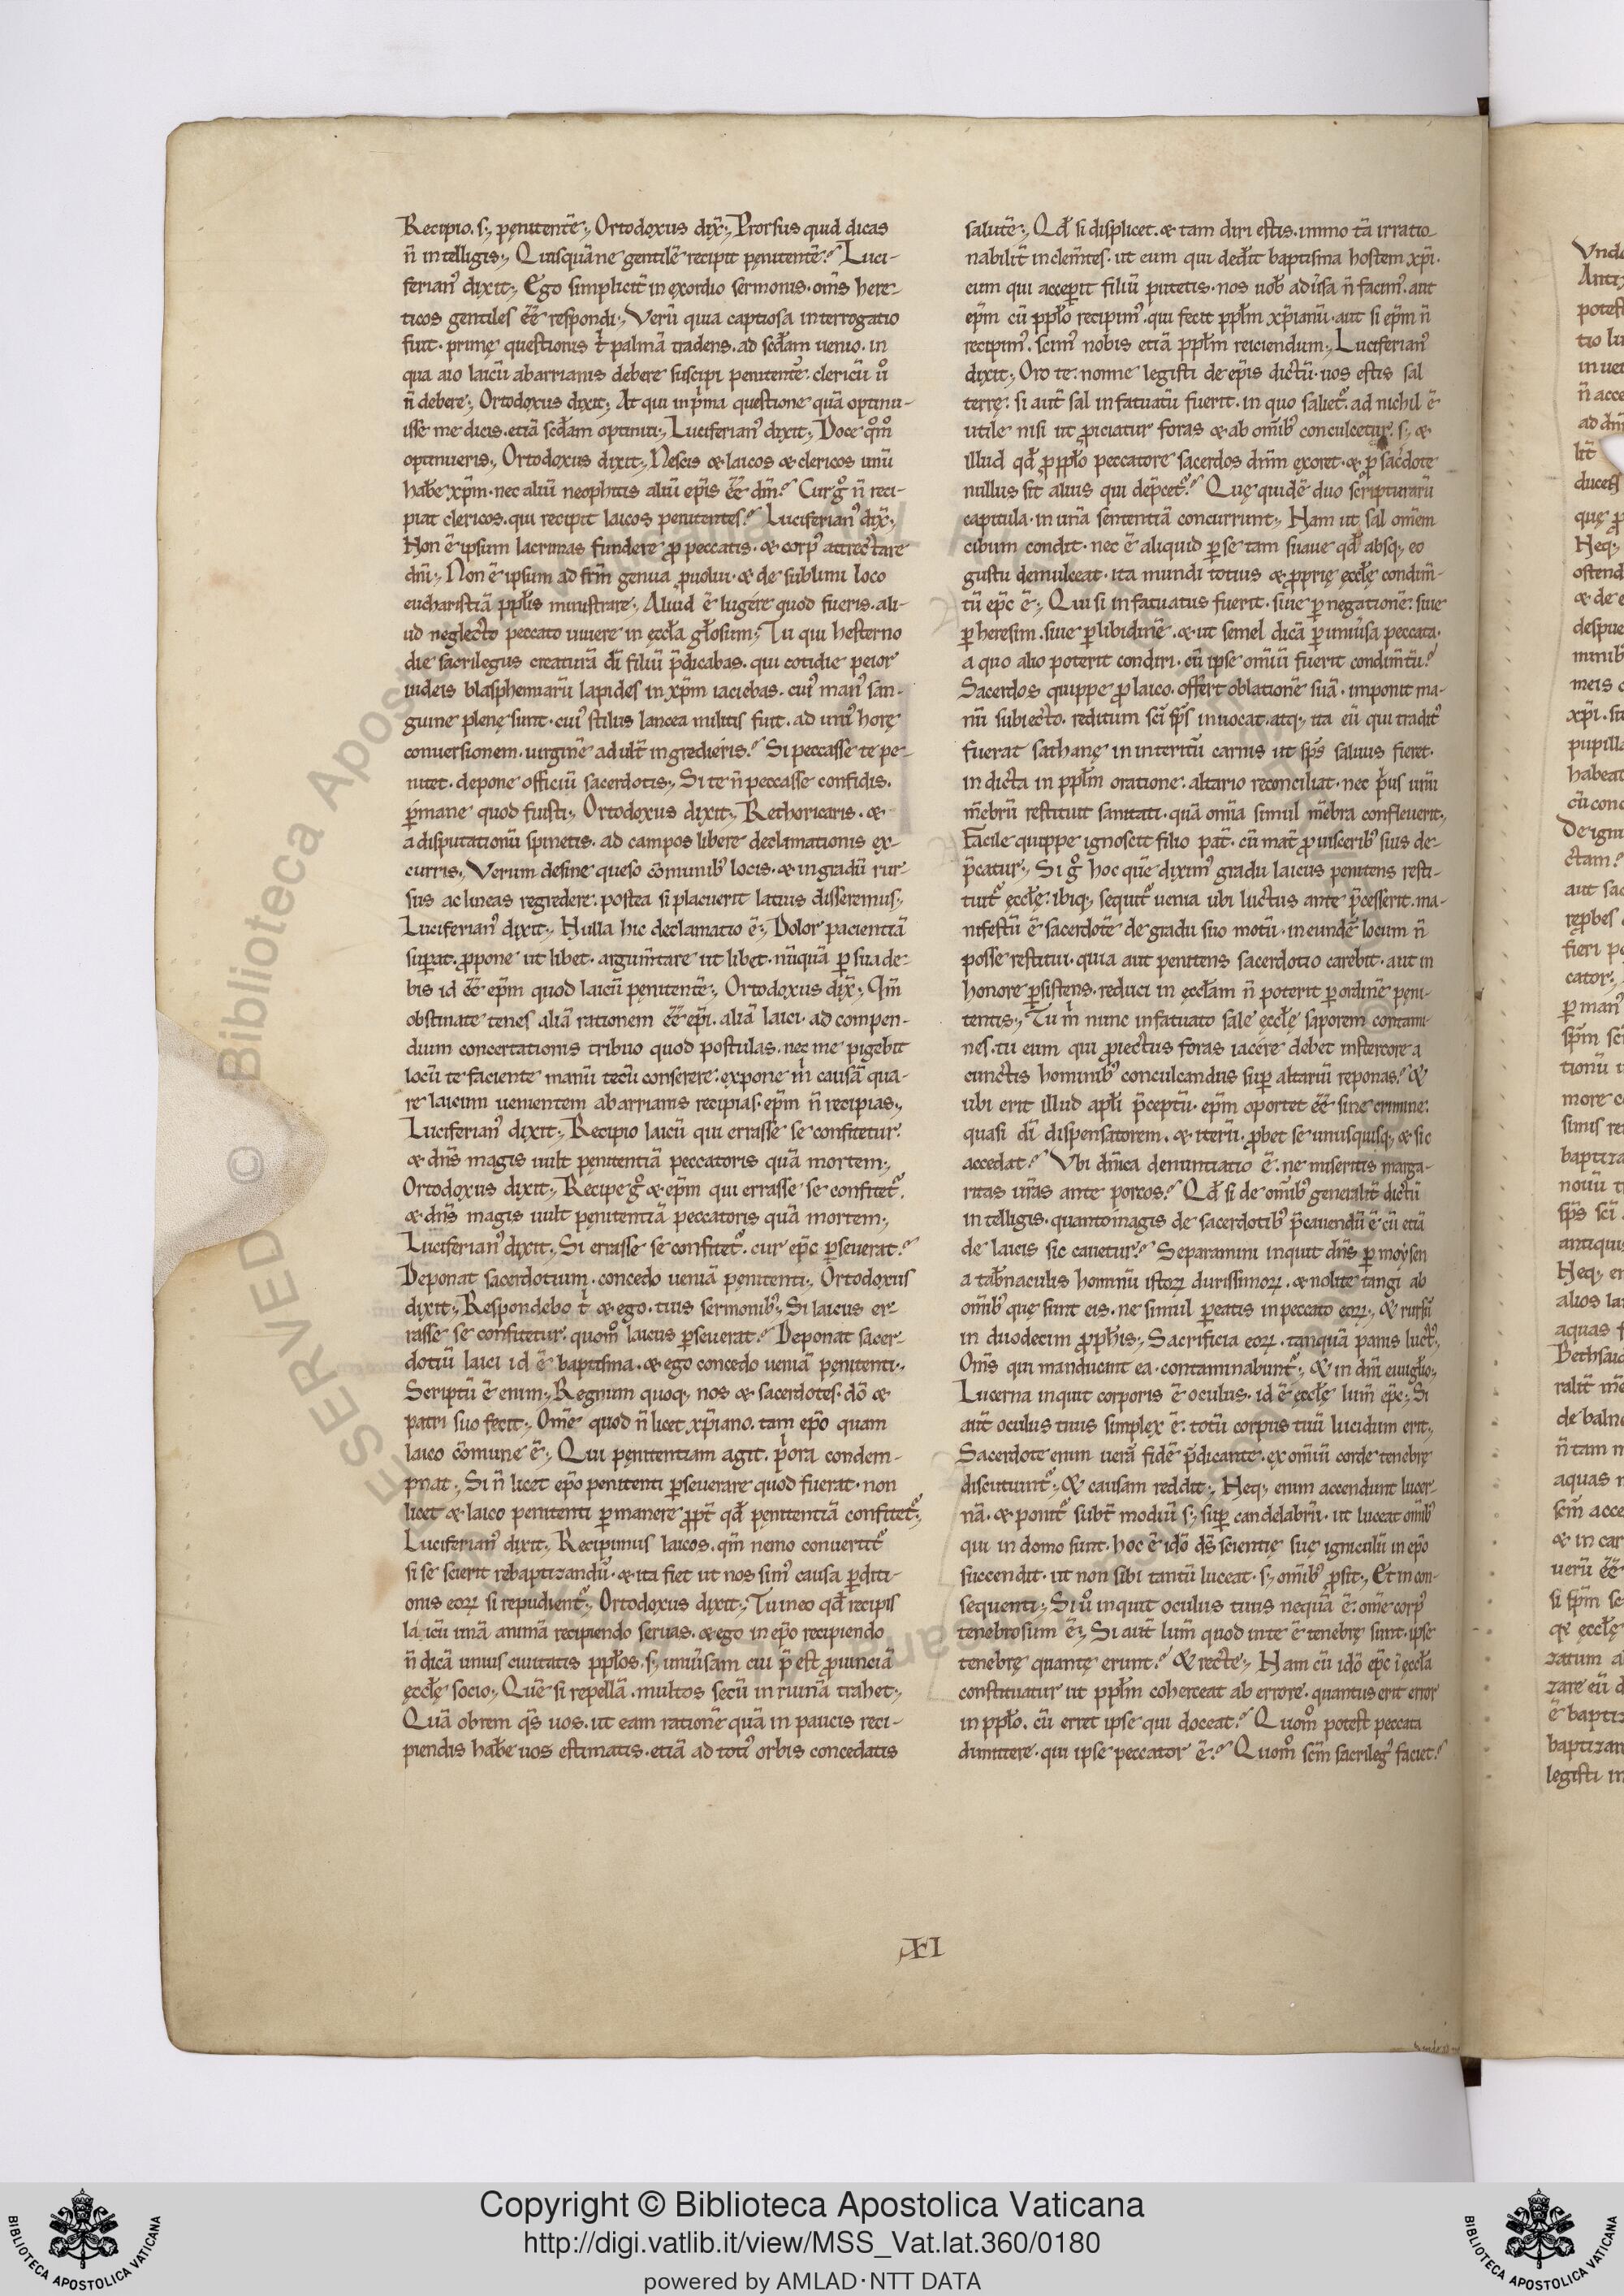 Recipio. s;, pęnitentē;, Ortodoxus dix̄;, Prorsus quid dicas
n̄ intelligis;, Quisquāne gentilē recipit pęnitentē? Luci-
ferian᾽ dixit;, Ego simplicit̄ in exordio sermonis. om̄s here-
ticos gentiles ēē respondi;, Verū quia captiosa interrogatio
fuit. primę questionis t̄ palmā tradens. ad scd̄am uenio. in
qua aio laicū abarrianis debere suscipi penitentē. clericū ů
n̄ debere;, Ortodoxus dixit;, At qui in p̄ma questione quā optinu-
isse me dicis. etiā scd̄am optinui;, Luciferian᾽ dixit;, Doce qm̊
optinueris;, Ortodoxus dixit;, Nescis & laicos & clericos unū
hab̄e xp̄m. nec aliū neophitis aliū ep̄is ēē dm̄? Cur g̊ n̄ reci-
piat clericos. qui recipit laicos penitentes? Luciferian᾽ dix̄;,
Non ē ipsum lacrimas fundere ꝓ peccatis. & corp᾽ attrectare
dn̄i;, Non ē ipsum ad fr̄m genua ꝓuolui. & de sublimi loco
eucharistiā ppl̄is ministrare;, Aliud ē lugere quod fueris. ali-
ud neglecto peccato uiuere in ęccl̄a gl̄osum;, Tu qui hesterno
die sacrilegus creaturā dī filiū p̄dicabas. qui cotidie peior
iudeis blasphemiarū lapides in xp̄m iaciebas. cui᾽ man᾽ san-
guine plenę sunt. cui᾽ stilus lancea militis fuit. ad uni᾽ horę
conuersionem. uirginē adult̄ ingredieris? Si peccasse te pe-
nitet. depone officiū sacerdotis;, Si te n̄ peccasse confidis.
ꝑmane quod fuisti;, Ortodoxus dixit;, Rethoricaris. &
a disputationū spinetis. ad campos libere declamationis ex-
curris;, Verum desine queso cōmunib᾽ locis. & in gradū rur-
sus ac lineas regredere. postea si placuerit latius disseremus;,
Luciferian᾽ dixit;, Nulla hic declamatio ē;, Dolor pacientiā
suꝑat. ꝓpone ut libet. argum̄tare ut libet. nūquā ꝑsuade-
bis id ēē ep̄m quod laicū pęnitentē;, Ortodoxus dix̄;, Qm̄
obstinate tenes aliā rationem ēē ep̄i. aliā laici. ad compen-
dium concertationis tribuo quod postulas. nec me pigebit
locū te faciente manū tecū conserere. expone m̄ causā qua-
re laicum uenientem abarrianis recipias. ep̄m n̄ recipias;,
Luciferian᾽ dixit;, Recipio laicū qui errasse se confitetur.
& dn̄s magis uult pęnitentiā peccatoris quā mortem;,
Ortodoxus dixit;, Recipe g̊ & ep̄m qui errasse se confitet᾽.
& dn̄s magis uult pęnitentiā peccatoris quā mortem;,
Luciferian᾽ dixit;, Si errasse se confitet᾽. cur ep̄c ꝑseuerat?
Deponat sacerdotium. concedo ueniā pęnitenti;, Ortodoxus
dixit;, Respondebo t̄ & ego. tuis sermonib᾽;, Si laicus er-
rasse se confitetur. quom̊ laicus ꝑseuerat? Deponat sacer-
dotiū laici id ē baptisma. & ego concedo ueniā pęnitenti;,
Scriptū ē enim;, Regnum quoq; nos & sacerdotes. dō &
patri suo fecit;, Om̄e quod n̄ licet xp̄iano. tam ep̄o quam
laico cōmune ē;, Qui pęnitentiam agit. p̄ora condem-
pnat;, Si n̄ licet ep̄o penitenti ꝑseuerare quod fuerat. non
licet & laico penitenti ꝑmanere ꝓpt̄ qd̄ pęnitentiā confitet᾽;,
Luciferian᾽ dixit;, Recipimus laicos. qm̄ nemo conuertit᾽
si se scierit rebaptizandū. & ita fiet ut nos sim᾽ causa ꝑditi-
onis eoꝝ si repudient᾽;, Ortodoxus dixit;, Tu ineo qd̄ recipis
laicū unā animā recipiendo seruas. & ego in ep̄o recipiendo
n̄ dicā unius ciuitatis ppl̄os. s; uniūsam cui p̄est ꝓuinciā
ęccl̄ę socio;, Quē si repellā. multos secū in ruinā trahet;,
Quā obrem qs̄ uos. ut eam rationē quā in paucis reci-
piendis hab̄e uos estimatis. etiā ad toti᾽ orbis concedatis
salutē;, Qd̄ si displicet. & tam diri estis. immo tā irratio-
nabilit̄ inclem̄tes. ut eum qui dedit baptisma hostem xp̄i.
eum qui acceꝑit filiū putetis. nos uob᾽ aduīsa n̄ facim᾽. aut
ep̄m cū ppl̄o recipim᾽. qui fecit ppl̄m xp̄ianū. aut si ep̄m n̄
recipim᾽. scim᾽ nobis etiā ppl̄m reiciendum;, Luciferian᾽
dixit;, Oro te. nonne legisti de ep̄is dictū. uos estis sal
terrę. si aut̄ sal infatuatū fuerit. in quo saliet᾽. ad nichil ē
utile nisi ut ꝓiciatur foras & ab omīb᾽ conculcetur. s; &
illud qd̄ ꝓ ppl̄o peccatore sacerdos dnm̄ exoret. & ꝓ sac̄dote
nullus sit alius qui dep̄cet᾽? Quę quidē duo scripturarū
capitula. in unā sententiā concurrunt;, Nam ut sal om̄em
cibum condit. nec ē aliquid ꝑ se tam suaue qd̄ absq; eo
gustu demulceat. ita mundi totius & ꝓprię ęccl̄ę condim̄-
tū ep̄c ē;, Qui si infatuatus fuerit. siue ꝑ negationē. siue
ꝑ heresim. siue ꝑ libidinē. & ut semel dicā ꝑ uniūsa peccata.
a quo alio poterit condiri. cū ipse omīū fuerit condim̄tū?
Sacerdos quippe ꝓ laico. offert oblationē suā. imponit ma-
nū subiecto. reditum scī sp̄s inuocat. atq; ita eū qui tradit᾽
fuerat sathanę in interitū carnis ut sp̄s saluus fieret.
indicta in ppl̄m oratione. altario reconciliat. nec p̄us unū
m̄ebrū restituit sanitati. quā om̄ia simul m̄ebra confleuerit;,
Facile quippe ignoscit filio pat̄. cū mat̄ ꝓ uiscerib᾽ suis de-
p̄catur;, Si g̊ hoc quē dixim᾽ gradu laicus penitens resti-
tuit᾽ ęccl̄ę. ibiq; sequit᾽ uenia ubi luctus ante p̄cesserit. ma-
nifestū ē sacerdotē de gradu suo motū. in eundē locum n̄
posse restitui. quia aut penitens sacerdotio carebit. aut in
honore ꝑsistens. reduci in ęccl̄am n̄ poterit ꝑ ordinē pęni-
tentis;, Tu m̄ nunc infatuato sale ęccl̄ę saporem contami-
nes. tu eum qui ꝓiectus foras iacere debet instercore a
cunctis hominib᾽ conculcandus suꝑ altariū reponas? &
ubi erit illud apl̄i p̄ceptū. ep̄m oportet ēē sine crimine.
quasi dī dispensatorem. & iterū. ꝓbet se unusquisq; & sic
accedat? Vbi dn̄ica denuntiatio ē. ne miseritis marga-
ritas ur̄as ante porcos? Qd̄ si de omīb᾽ generalit̄ dictū
intelligis. quantomagis de sacerdotib᾽ p̄cauendū ē cū etiā
de laicis sic cauetur? Separamini inquit dn̄s ꝑ moysen
a tab̄naculis hominū istoꝝ durissimoꝝ. & nolite tangi ab
omīb᾽ quę sunt eis. ne simul ꝑeatis in peccato eoꝝ;, & rursū
in duodecim ꝓph̄is;, Sacrificia eoꝝ. tanquā panis luct᾽;,
Om̄s qui manducant ea. contaminabunt᾽;, & in dm̄ euuigl̄io;,
Lucerna inquit corporis ē oculus. id ē ęccl̄ę lum̄ ep̄c;, Si
aut̄ oculus tuus simplex ē. totū corpus tuū lucidum erit;,
Sacerdote enim uerā fidē p̄dicante. ex omīū corde tenebrę
discutiunt᾽;, & causam reddit;, Neq; enim accendunt lucer-
nā. & ponit᾽ subt̄ modiū s; suꝑ candelabrū. ut luceat omīb᾽
qui in domo sunt. hoc ē idō ds̄ scientię suę igniculū in ep̄o
succendit. ut non sibi tantū luceat. s; omīb᾽ ꝓsit;, Et in con-
sequenti;, Si ů inquit oculus tuus nequā ē. om̄e corp᾽
tenebrosum ē;, Si aut̄ lum̄ quod inte ē tenebrę sunt. ipse
tenebrę quantę erunt? & recte;, Nam cū idō ep̄c ī ęccl̄a
constituatur ut ppl̄m coherceat ab errore. quantus erit error
in ppl̄o. cū erret ipse qui doceat? Quom̊ potest peccata
dimittere. qui ipse peccator ē? Quom̊ scm̄ sacrileg᾽ faciet?
XI
Copyright © Biblioteca Apostolica Vaticana
http://digi.vatlib.it/view/MSS_Vat.lat.360/0180
powered by AMLAD·NTT DATA
BIBLIOTECA APOSTOLICA VATICANA
BIBLIOTECA APOSTOLICA VATICANA